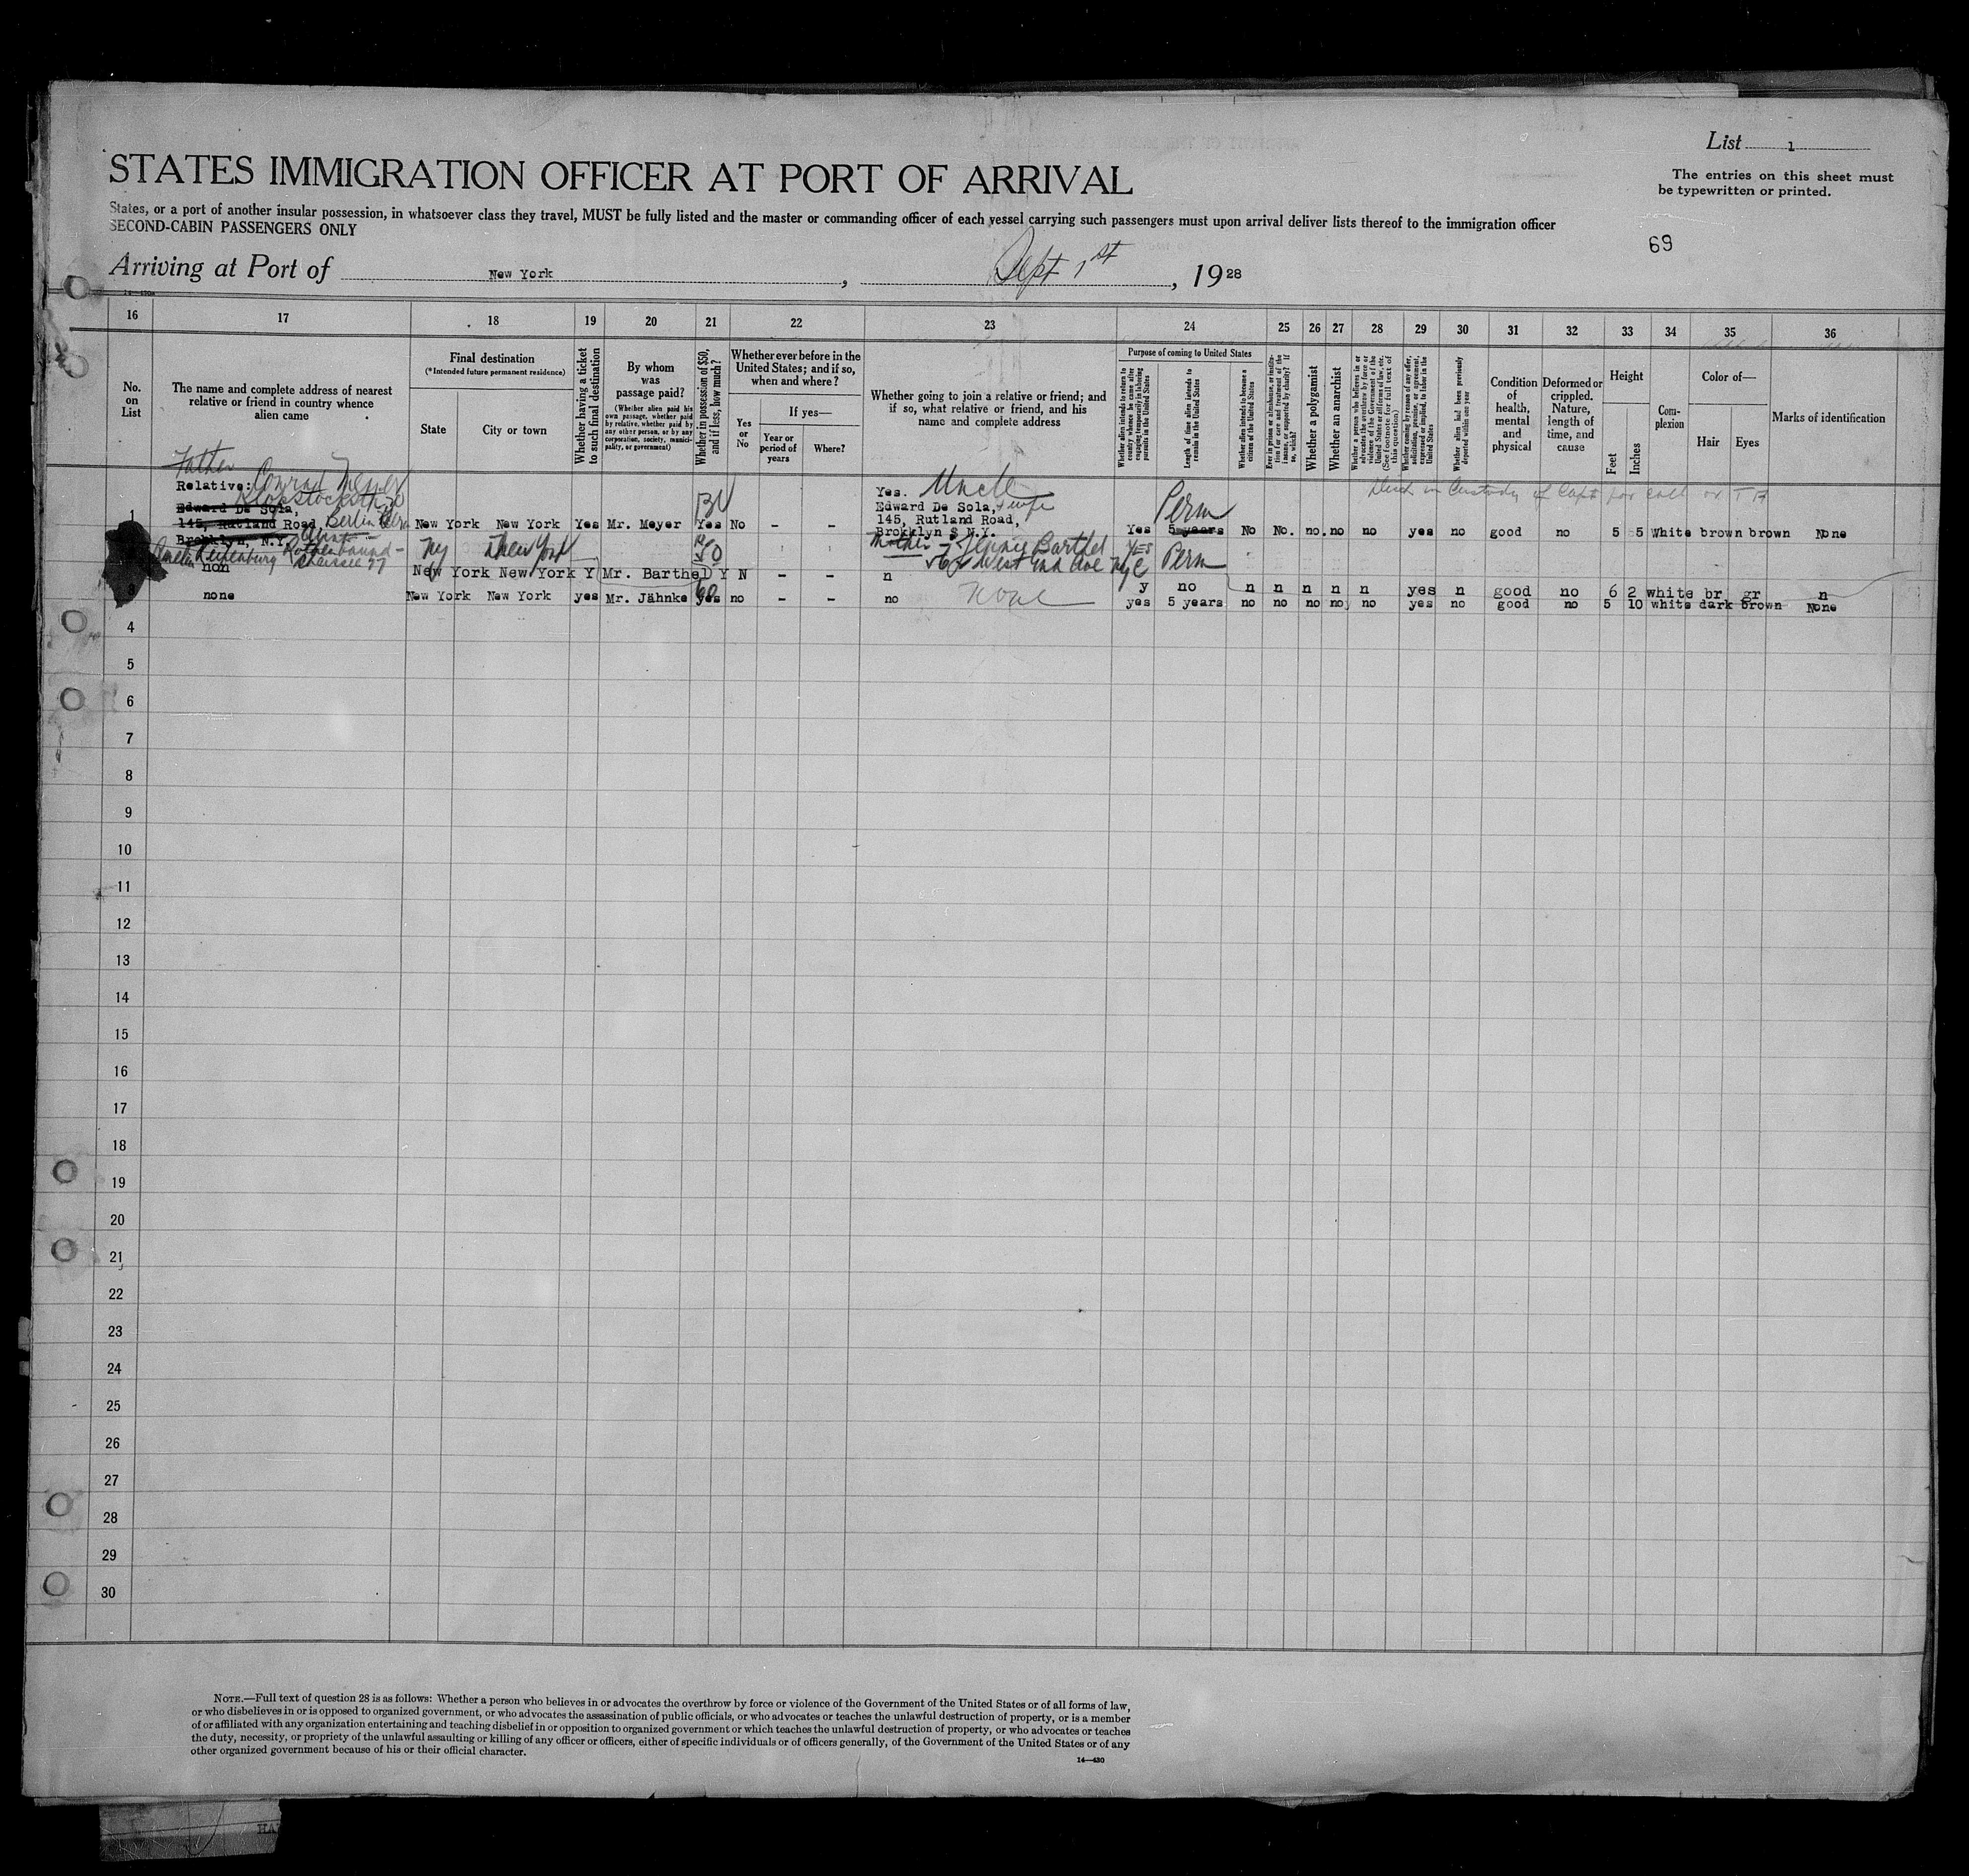 List 1
STATES IMMIGRATION OFFICER AT PORT OF ARRIVAL
The entries on this sheet must
be typewritten or printed.
States, or a port of another insular possession, in whatsoever class they travel, MUST be fully listed and the master or commanding officer of each vessel carrying such passengers must upon arrival deliver lists thereof to the immigration officer
SECOND-CABIN PASSENGERS ONLY
69
Arriving at Port of New York, Sept 1st, 1928
16 17 18 19 20 21 22 23 24 25 26 27 28 29 30 31 32 33 34 35 36
No. on List
The name and complete address of nearest relative or friend in country whence alien came
Final destination
(*Intended future permanent residence)
State
City or town
Whether having a ticket to such final destination
By whom was passage paid?
(Whether alien paid his own passage, whether paid by relative, whether paid by any other person, or by any corporation, society, municipality, or government)
Whether in possession of $50, and if less, how much?
Whether ever before in the United States; and if so, when and where?
Yes or No
If yes—
Year or period of years
Where?
Whether going to join a relative or friend; and if so, what relative or friend, and his name and complete address
Purpose of coming to United States
Whether alien intends to return to country whence he came after engaging temporarily in laboring pursuits in the United States
Length of time alien intends to remain in the United States
Whether alien intends to become a citizen of the United States
Ever in prison or almshouse, or institution for care and treatment of the insane, or supported by charity? If so, which?
Whether a polygamist
Whether an anarchist
Whether a person who believes in or advocates the overthrow by force or violence of the Government of the United States or all forms of law, etc. (See footnote for full text of this question)
Whether coming by reason of any offer, solicitation, promise, or agreement, expressed or implied, to labor in the United States
Whether alien had been previously deported within one year
Condition of health, mental and physical
Deformed or crippled. Nature, length of time, and cause
Height
Feet
Inches
Complexion
Color of—
Hair
Eyes
Marks of identification
Father
Relative: Conrad
Edward De Sola,
145, Rutland Road, Berlin
Brooklyn, N.Y. Aunt
1 New York New York Yes Mr. Meyer Yes No - -
Yes. Uncle
Edward De Sola, + wife
145, Rutland Road,
Brokklyn $ N.Y.
Perm
Yes 5 years No No. no. no no yes no good no 5 5 White brown brown None
NY New York 50
Mother - Jennie Barthel
West End Ave NYC
Yes Perm
non New York New York Y Mr. Barthel Y N - - n
y no n n n n n yes n good no 6 2 white br gr n
3 none New York New York yes Mr. Jähnke yes no - - no None
yes 5 years no no no no no yes no good no 5 10 white dark brown None
4
5
6
7
8
9
10
11
12
13
14
15
16
17
18
19
20
21
22
23
24
25
26
27
28
29
30
NOTE.—Full text of question 28 is as follows: Whether a person who believes in or advocates the overthrow by force or violence of the Government of the United States or of all forms of law,
or who disbelieves in or is opposed to organized government, or who advocates the assassination of public officials, or who advocates or teaches the unlawful destruction of property, or is a member
of or affiliated with any organization entertaining and teaching disbelief in or opposition to organized government or which teaches the unlawful destruction of property, or who advocates or teaches
the duty, necessity, or propriety of the unlawful assaulting or killing of any officer or officers, either of specific individuals or of officers generally, of the Government of the United States or of any
other organized government because of his or their official character.
14—430